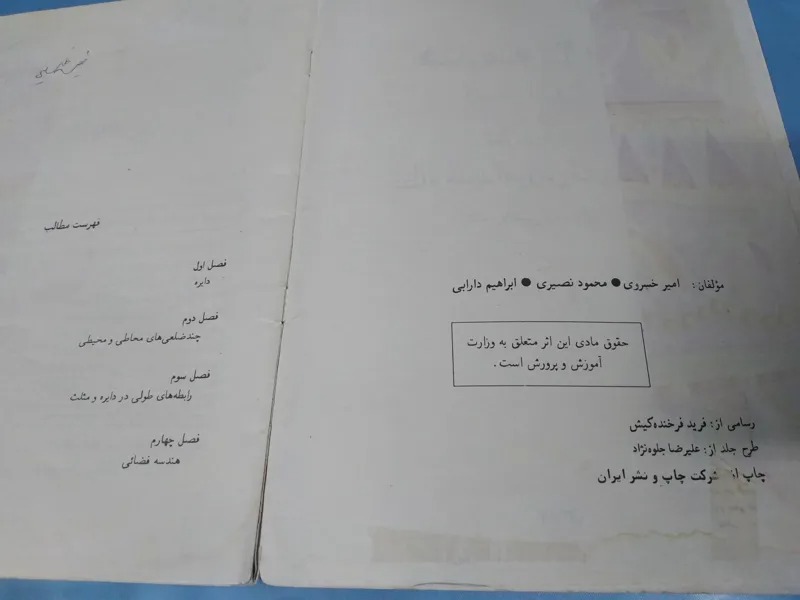 مؤلفان: امیر خسروی ● محمود نصیری ● ابراهیم دارابی
حقوق مادی این اثر متعلق به وزارت
آموزش و پرورش است.
رسامی از: فرید فرخنده‌کیش
طرح جلد از: علیرضا جلوه‌نژاد
چاپ از: شرکت چاپ و نشر ایران
فهرست مطالب
فصل اول
دایره
فصل دوم
چندضلعی‌های محاطی و محیطی
فصل سوم
رابطه‌های طولی در دایره و مثلث
فصل چهارم
هندسه فضائی